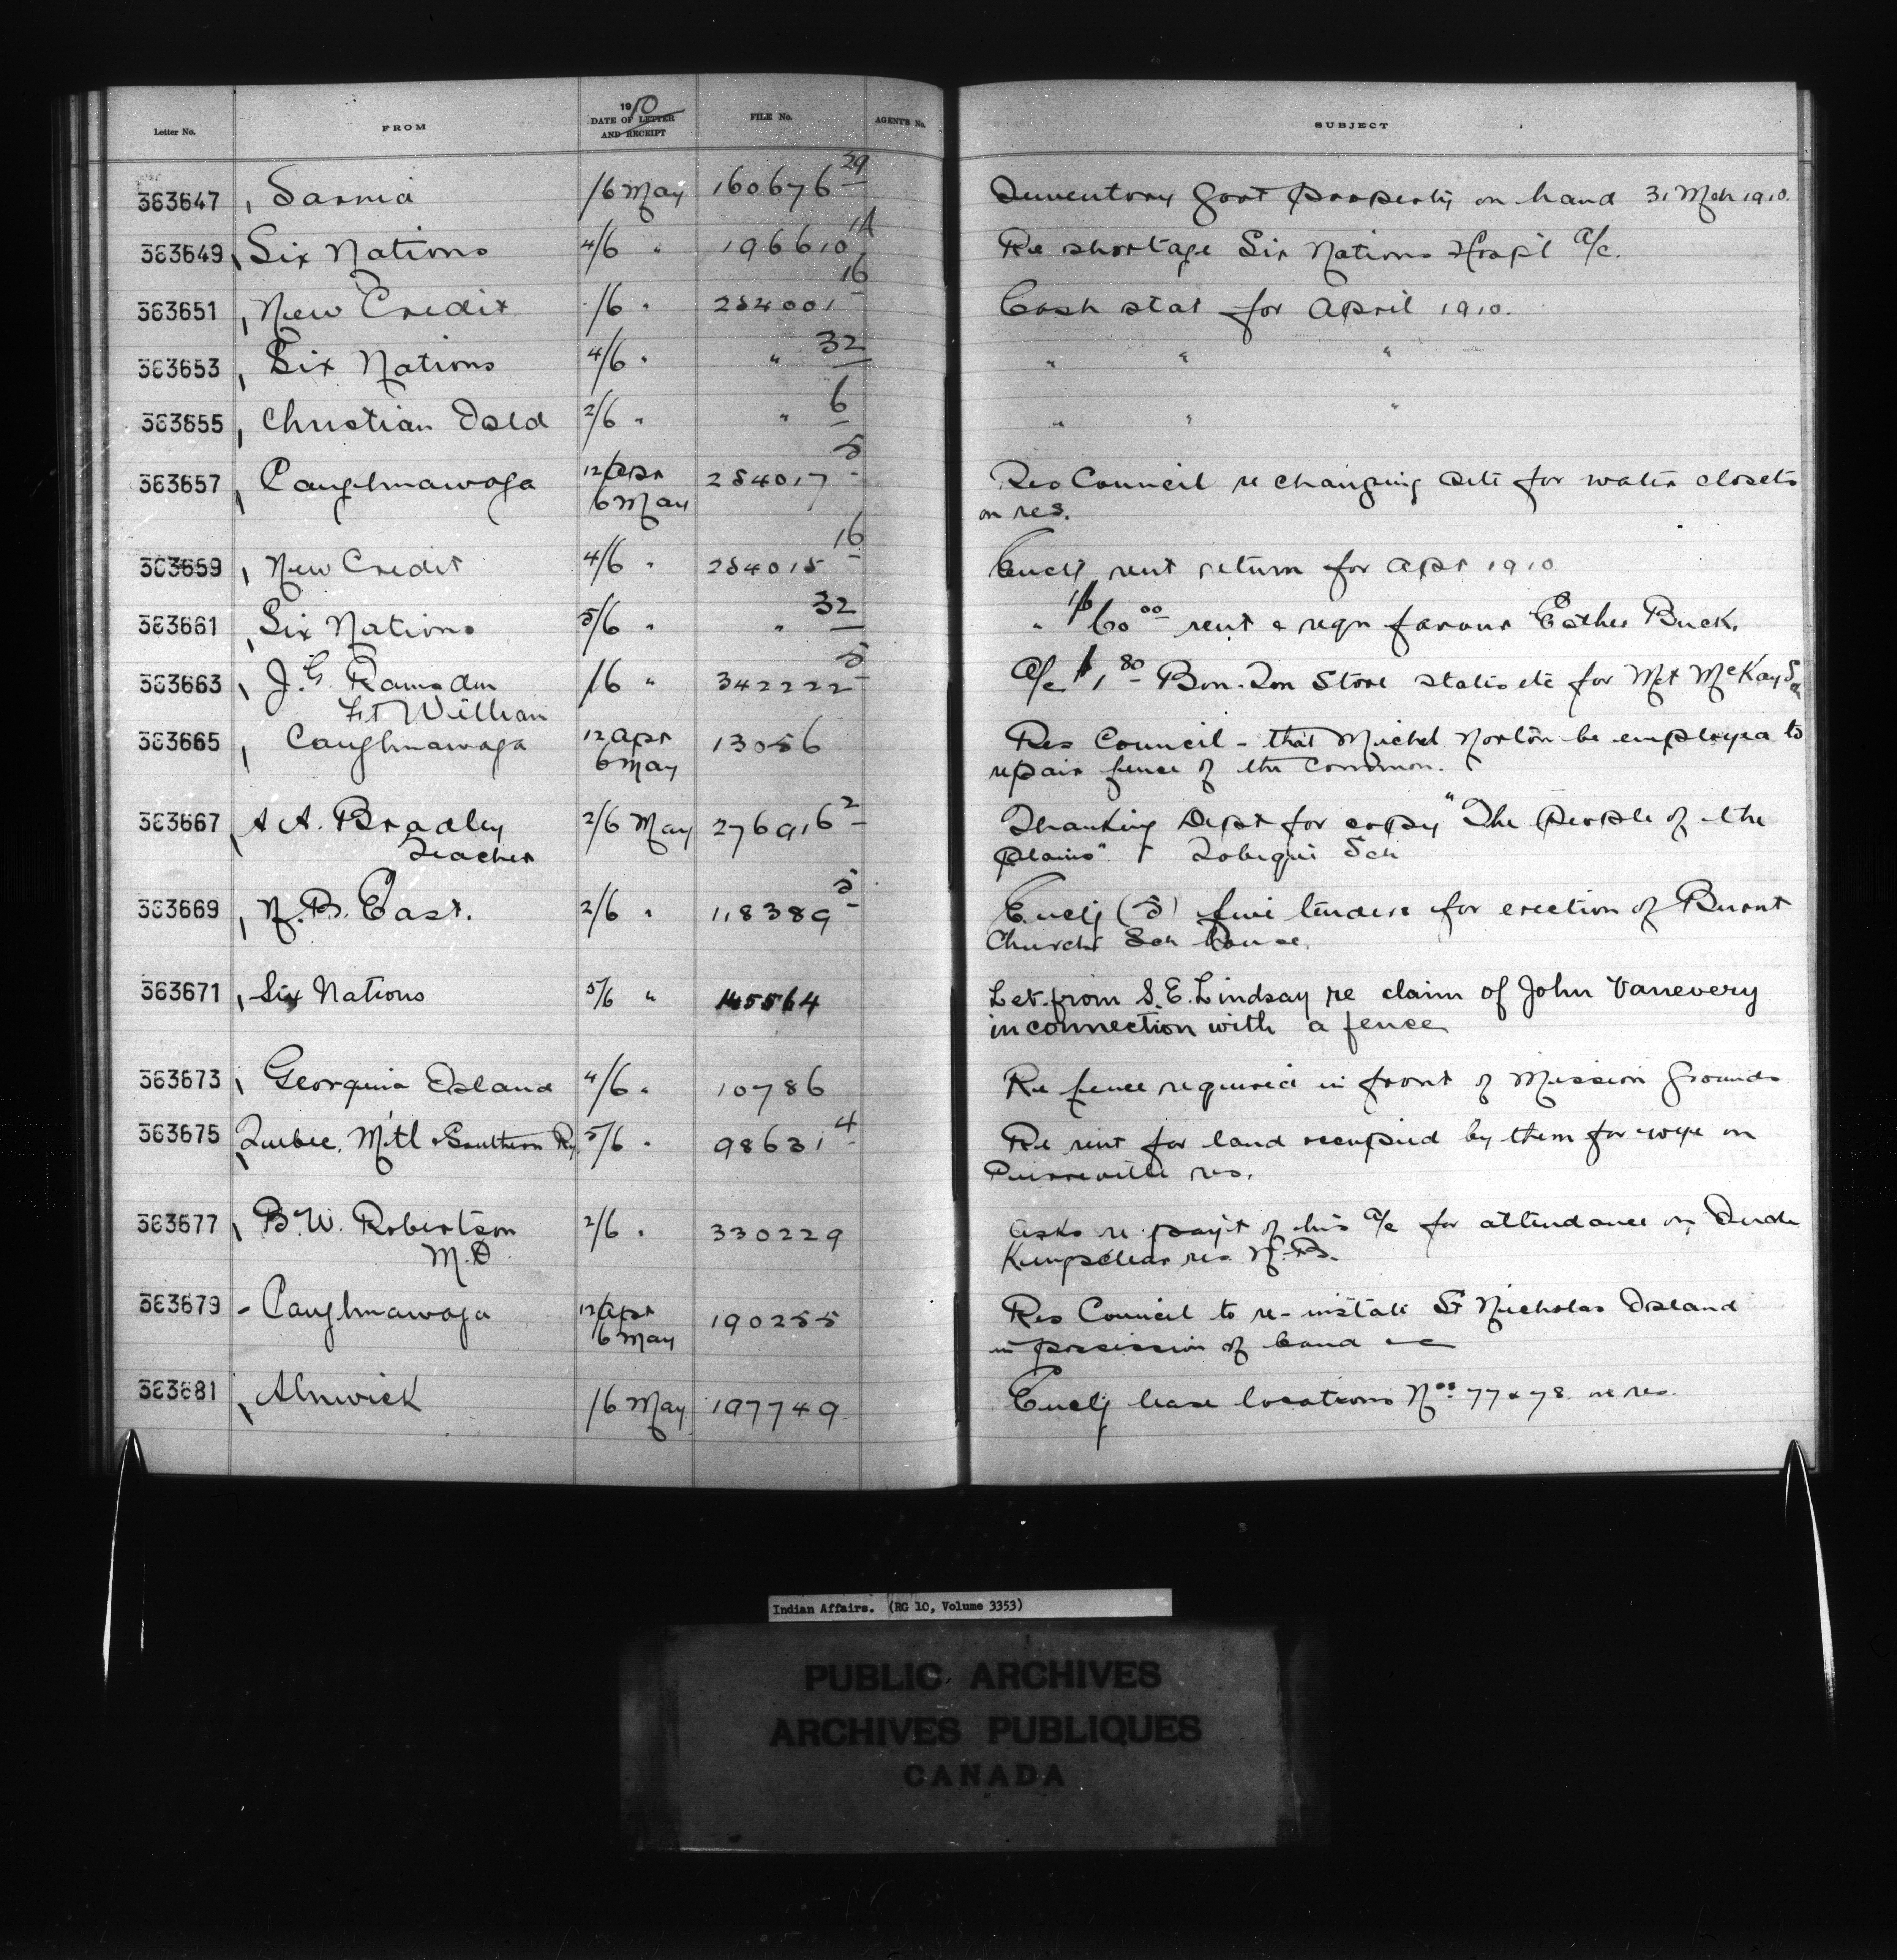 1910
Letter No. FROM DATE OF LETTER AND RECEIPT FILE No. AGENT'S No. SUBJECT
363647 Sarnia /6 May 160676 29 Inventory Govt property on hand 31 Mch 1910.
363649 Six Nations 4/6 " 196610 1A Re shortage Six Nations Hosp'l a/c.
363651 New Credit /6 " 254001 16 Cash stat for April 1910.
363653 Six Nations 4/6 " " 32 " " "
363655 Christian Isld 2/6 " " 6 " " "
363657 Caughnawaga 12 Apr 254017 5 Res Council re changing site for water closets
6 May on res.
363659 New Credit 4/6 " 254015 16 Encl'g rent return for Apr 1910
363661 Six Nations 5/6 " " 32 " $60 00 rent & reqn favour Esther Buck.
363663 J. G. Ramsden /6 " 342222 5 A/c $1 80 Bon-Ton Store for Mt McKay
Ft William
363665 Caughnawaga 12 Apr 13056 Res Council - that Michel Norton be employed to
6 May repair fence of the common.
363667 A A. Bradley 2/6 May 276916 2 Thanking Dept for copy "The People of the
Teacher plains" Tobique Sch
363669 N. B. East. 2/6 " 118389 5 Encl'g (5) five tenders for erection of Burnt
Church Sch house.
363671 Six Nations 5/6 " 145564 Let. from S. E. Lindsay re claim of John Vanevery
in connection with a fence
363673 Georgina Island 4/6 " 10786 Re fence required in front of Mission Grounds
363675 Quebec, Mtl & Southern Ry 5/6 " 98631 4 Re rent for land occupied by them for wye on
Pierreville res.
363677 B. W. Robertson 2/6 " 330229 Asks re pay't of his a/c for attendance on Inds
M.D. Kingsclear res N. B.
363679 - Caughnawaga 12 Apr 190255 Res Council to re-instate St Nicholas Island
6 May in possession of band
363681 Alnwick /6 May 197749 Encl'g lease locations Nos 77 & 78 res.
Indian Affairs. (RG 10, Volume 3353)
PUBLIC ARCHIVES
ARCHIVES PUBLIQUES
CANADA